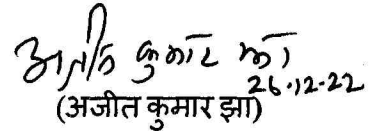 अजीत कुमार झा
26.12.22
(अजीत कुमार झा)